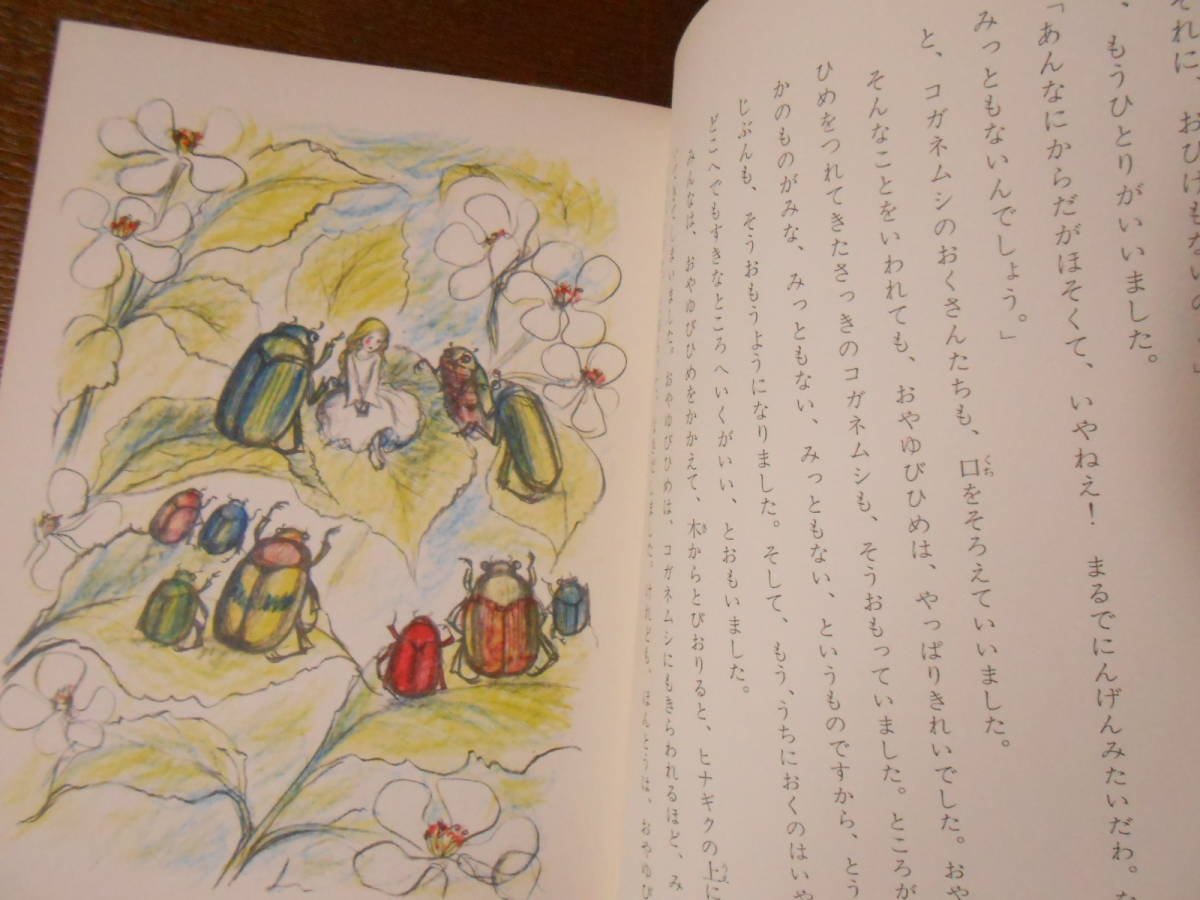 それに、おひげもないの
、もうひとりがいいました。
「あんなにからだがほそくて、いやねえ！　まるでにんげんみたいだわ。な
みっともないんでしょう。」
と、コガネムシのおくさんたちも、口をそろえていいました。
そんなことをいわれても、おやゆびひめは、やっぱりきれいでした。おや
ひめをつれてきたさっきのコガネムシも、そうおもっていました。ところが
かのものがみな、みっともない、みっともない、というものですから、とう
じぶんも、そうおもうようになりました。そして、もう、うちにおくのはいや
どこへでもすきなところへいくがいい、とおもいました。
みんなは、おやゆびひめをかかえて、木からとびおりると、ヒナギクの上に
しまいました。おやゆびひめは、コガネムシにもきらわれるほど、み
ました。けれども、ほんとうは、おやゆび